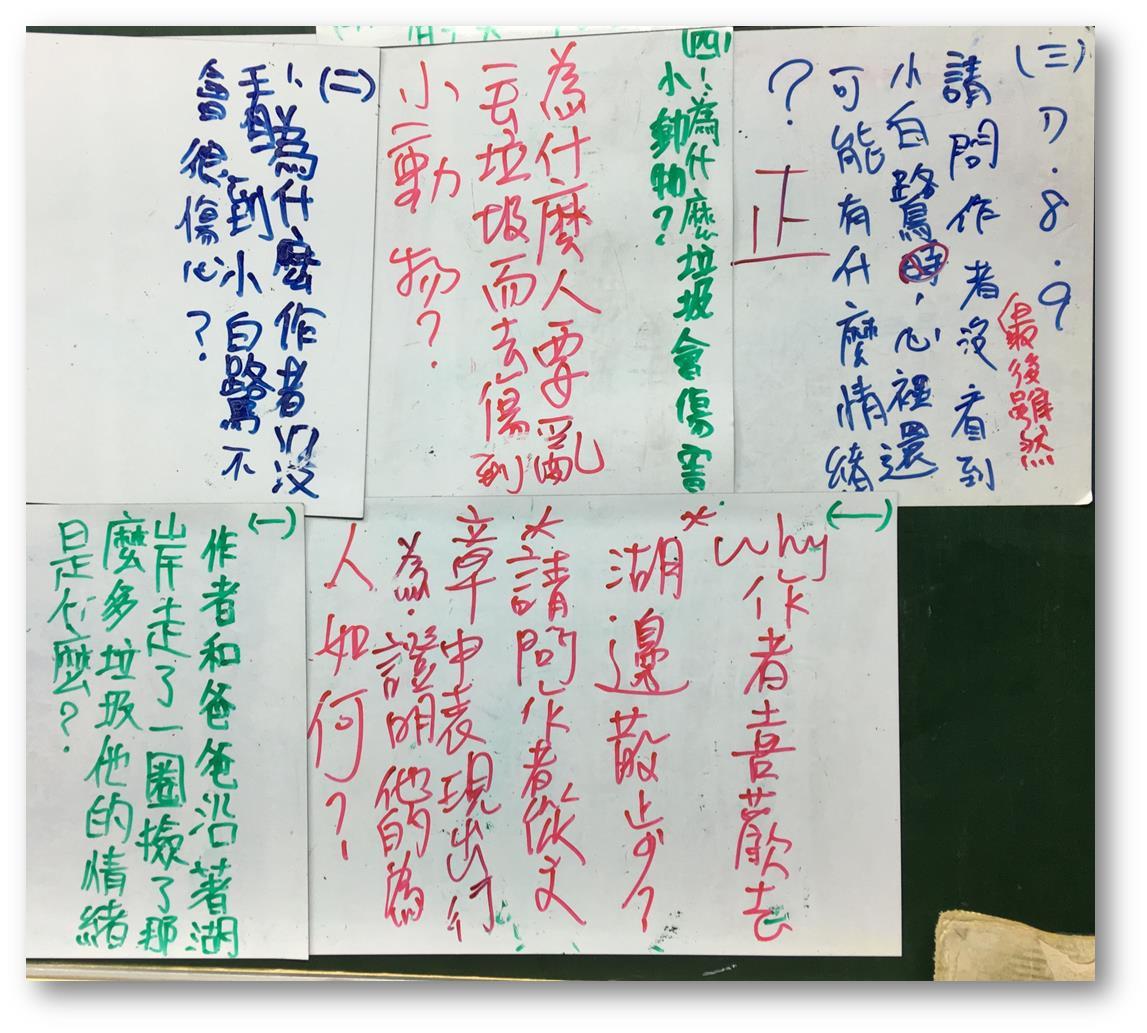 (三)
7.8.9
最後雖然
請問作者沒看到
小白鷺時,心裡還
可能有什麼情緒
?
正
(四)
1.為什麼垃圾會傷害
小動物?
為什麼人要亂
丟垃圾而去傷到
小動物?
(二)
1.為什麼作者沒
看到小白鷺不
會很傷心?
(一)
why作者喜歡去
*湖邊散步?
*請問作者從文
章中表現出行
為.證明他的為
人如何?
(一)
作者和爸爸沿著湖
岸走了一圈撿了那
麼多垃圾他的情緒
是什麼?